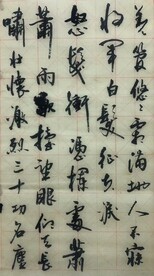 羌管悠悠霜满地人不寐
将軍白髮征夫淚
怒髮衝憑欄處蕭
蕭雨歇抬望眼仰天長
嘯壯懷激烈三十功名塵